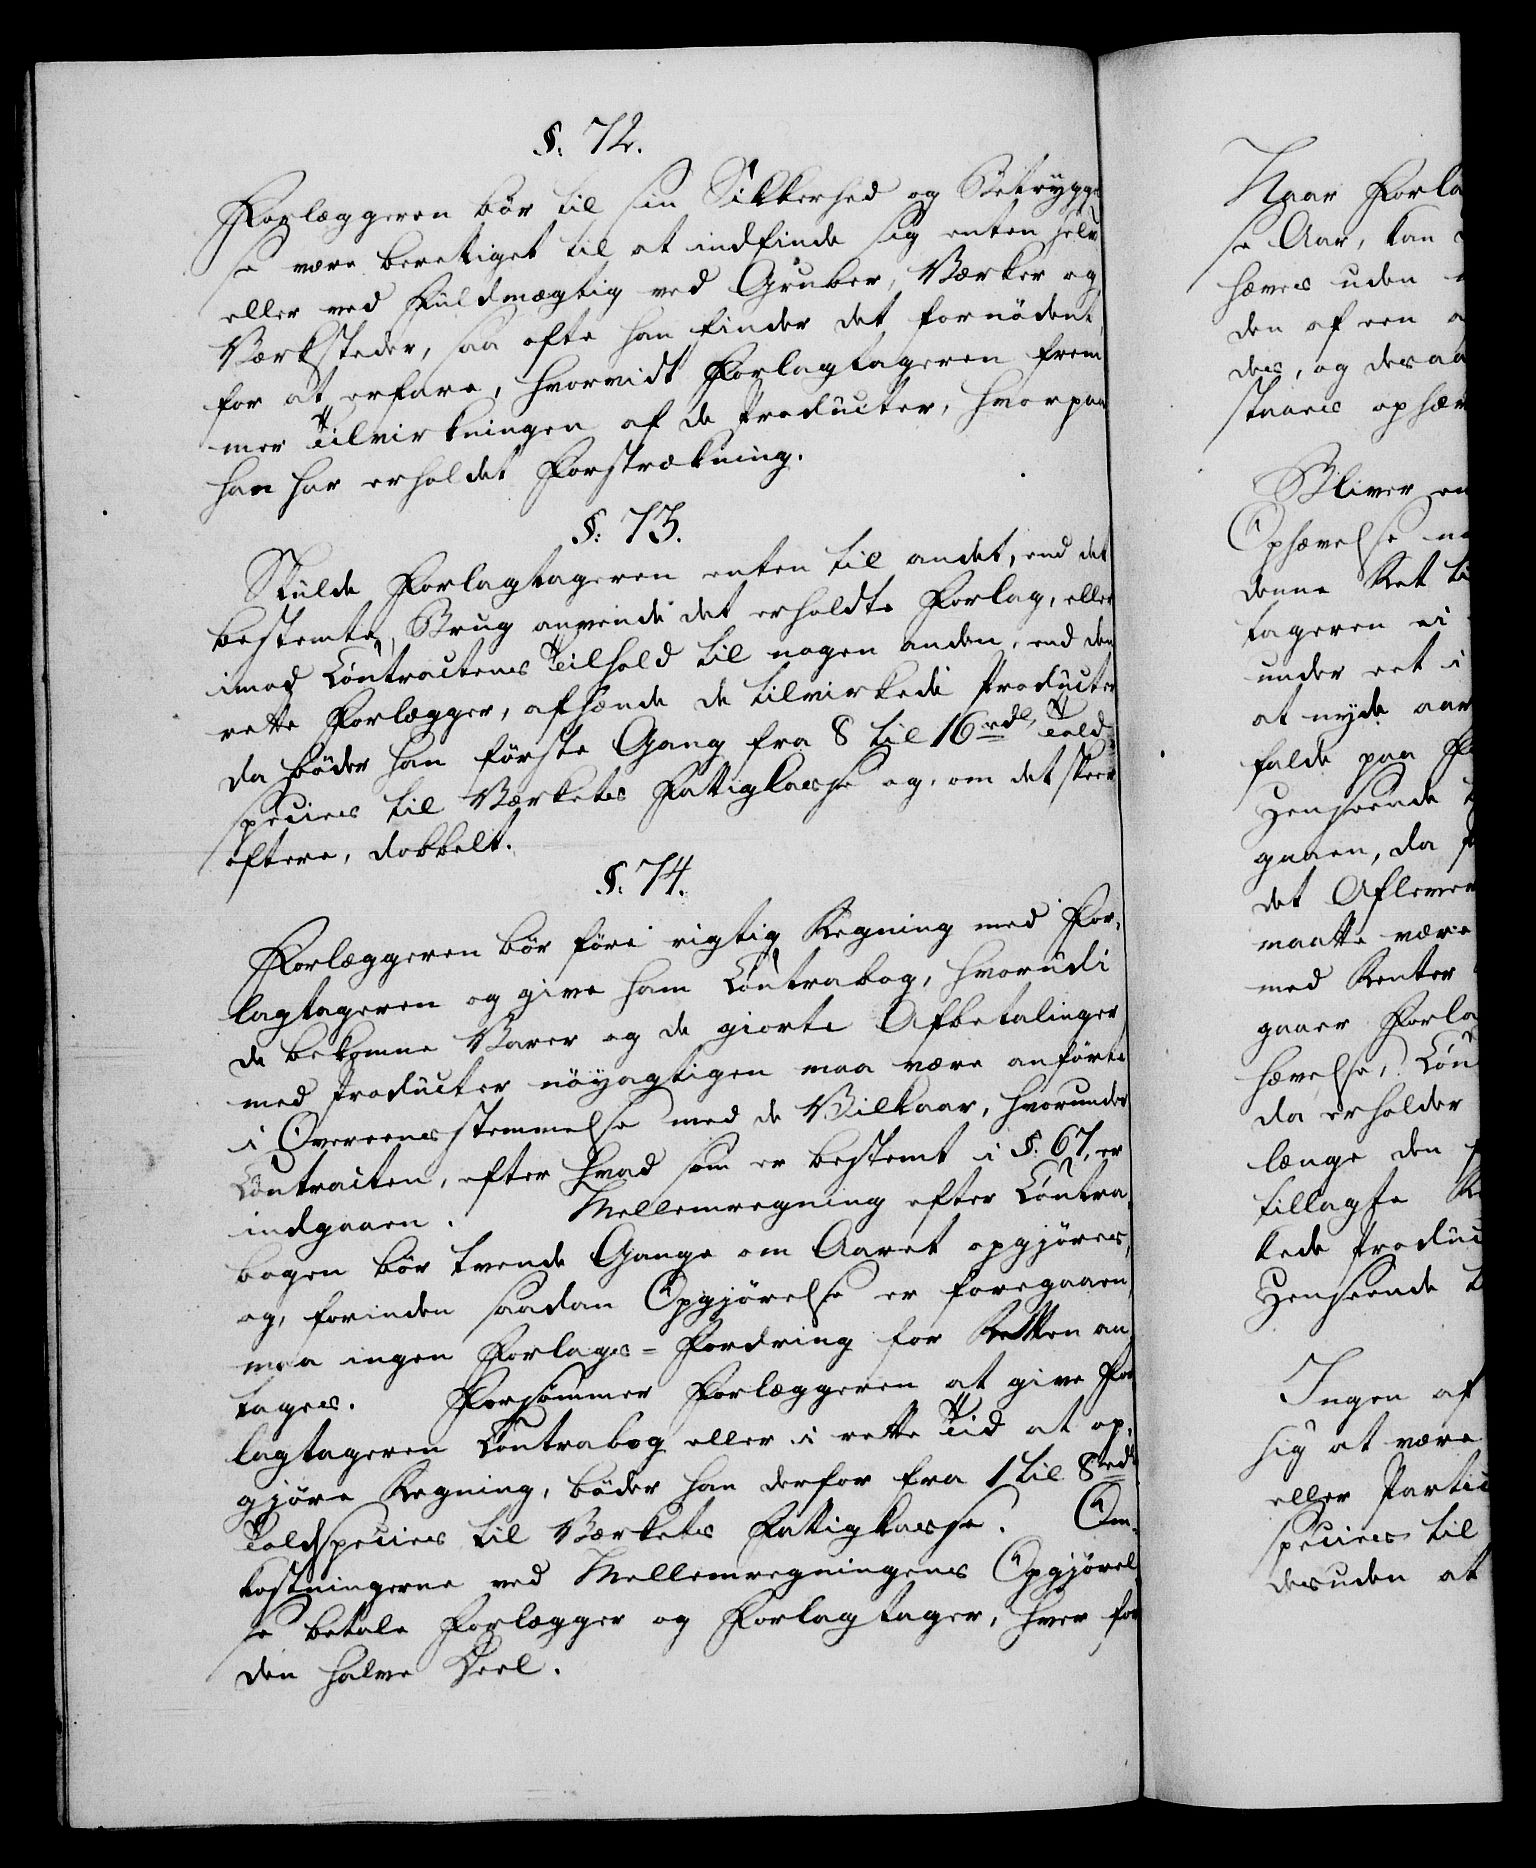 §. 72.
Forlæggeren bör til sin Sikkerhed og Betrygge
se være berettiget til at indfinde sig enten selv
eller ved Fuldmægtig ved Gruber, Værker og
Værksteder, saa ofte han finder det fornödent
for at erfare, hvorvidt Forlagtageren frem
mer Tilvirkningen af de Producter, hvorpaa
han har erholdet Forstrækning.
§. 73.
Skulde Forlagtageren enten til andet, end det
bestemte, Brug anvende det erholdte Forlag, eller
imod Contractens Tilhold til nogen anden, end den
rette Forlægger, afhænde de tilvirkede Producter
da böder han förste Gang fra 8 til 16 rdl. Sölv
species til Værkets Fattigkasse og, om det skeer
oftere, dobbelt.
§. 74.
Forlæggeren bör före rigtig Regning med For-
lagtageren og give ham Contrabog, hvorudi
de bekomne Varer og de giorte Afbetalinger
med Producter nöyagtigen maa være anförte
i Overeensstemmelse med de Vilkaar, hvorunder
Contracten, efter hvad som er bestemt i §. 67, er
indgaaen. Mellemregning efter Contra-
bogen bör tvende Gange om Aaret opgjöres,
og, forinden saadan Opgjörelse er foregaaen,
maa ingen Forlags-Fordring for Retten an-
tages. Forsömmer Forlæggeren at give For
lagtageren Contrabog eller i rette Tid at op-
gjöre Regning, böder han derfor fra 1 til 8 rdl
Sölvspecies til Værkets Fattigkasse. Om-
kostningerne ved Mellemregningens Opgjörel
se betale Forlægger og Forlagtager, hver for
den halve Deel.
Naar Forla
se Aar, kan
hæves uden
den af een
des, og desaa
staaes ophæv
Bliver en
Ophævelse
denne Ret ti
tageren ei
under eet i
at nyde aar
falde paa
Henseende
gaaen, da
det Aflever
maatte være
med Renter
gaaer Forla
hævelse, Con
da erholder
længe den
tillagte
kede Produc
Henseende
Ingen af
sig at være
eller Partic
species til
desuden at